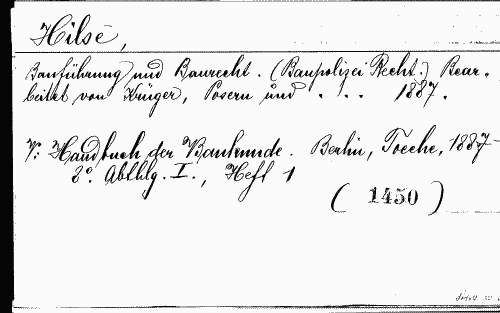 Hilse,
Bauführung und Baurecht. (Baupolizei Recht.) Bear-
beitet von Krüger, Posern und . . . 1887.
V: Handbuch der Baukunde. Berlin, Toeche, 1887-
3º. Abthlg. I., Heft 1
(1450)